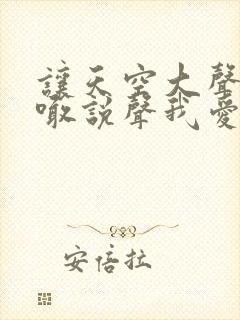 讓天空大聲
噉說聲我愛
安倍拉